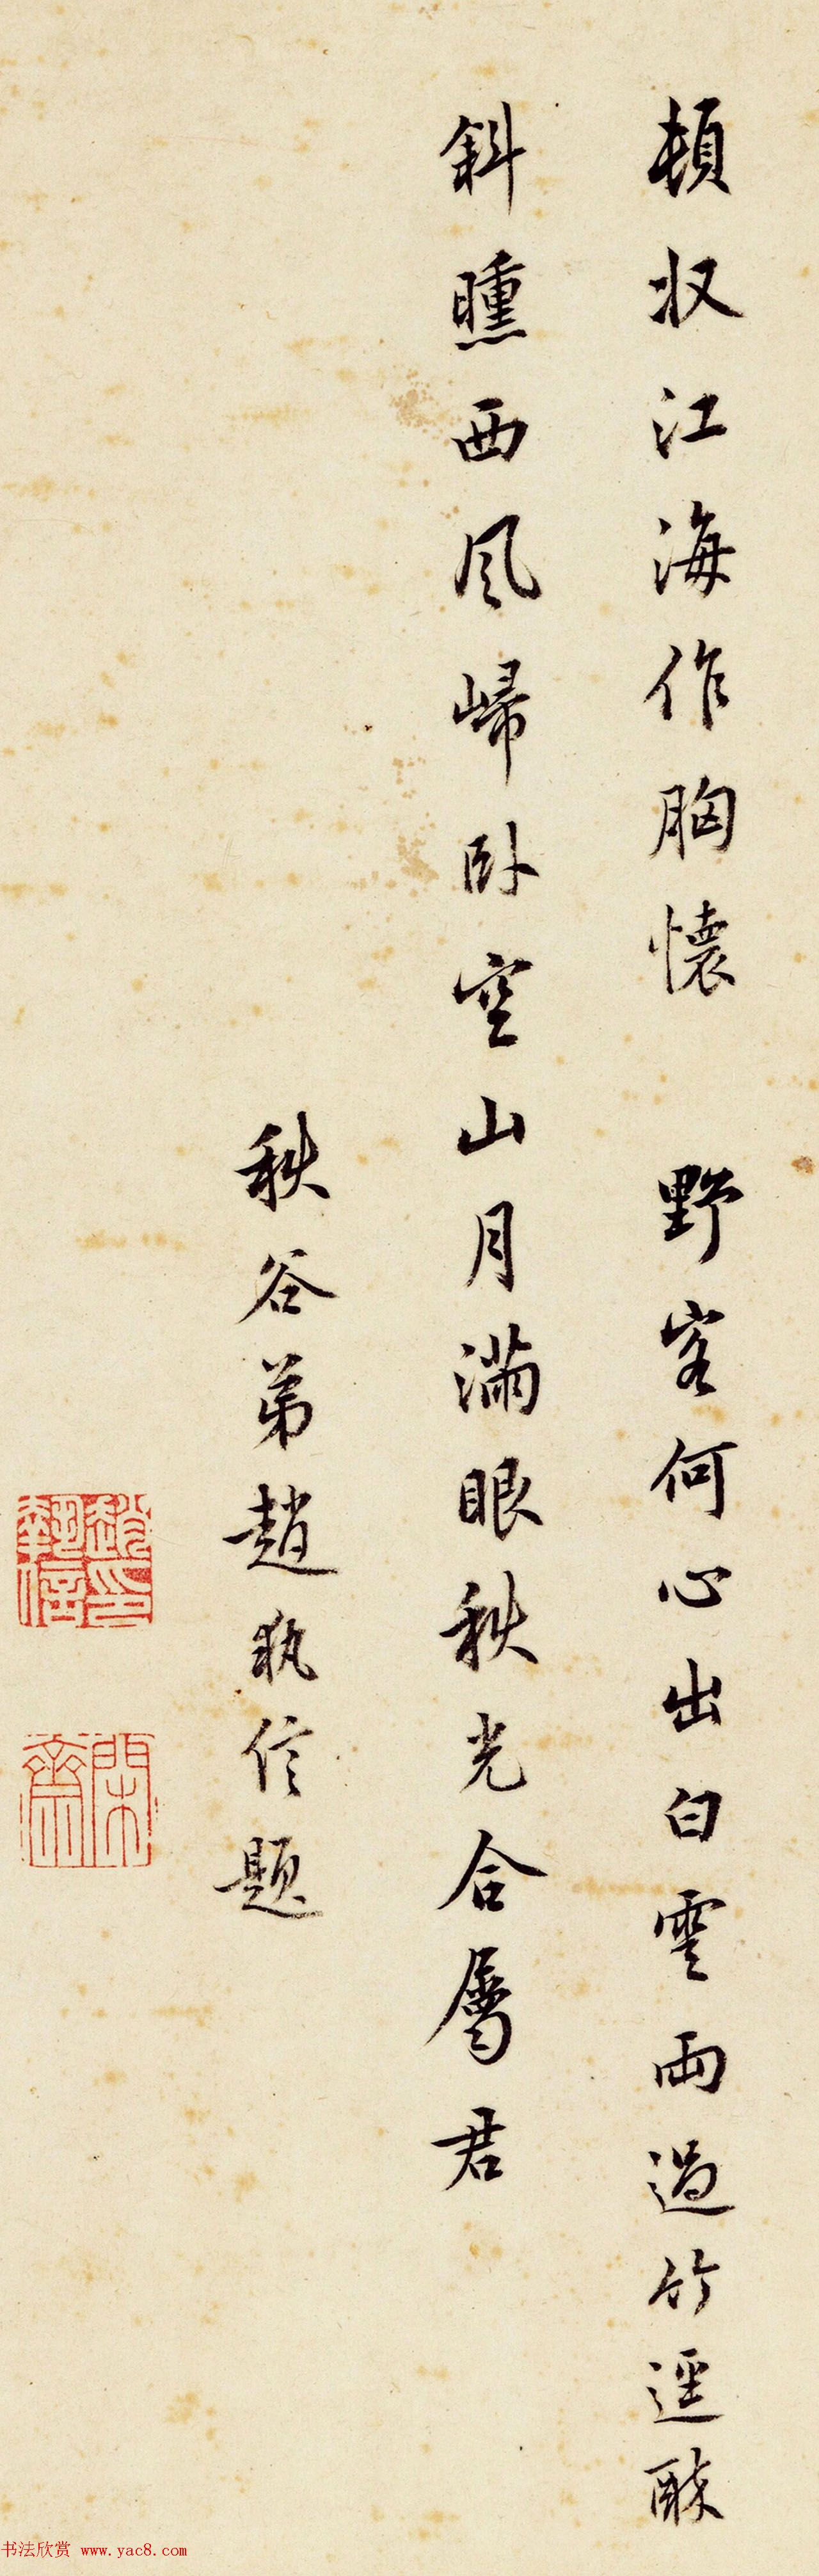 頓收江海作胸懷　野客何心出白雲雨過竹逕酥
斜曛西風歸卧空山月滿眼秋光合屬君
秋谷弟趙執信題
趙執信印
閑齋
书法欣赏 www.yac8.com